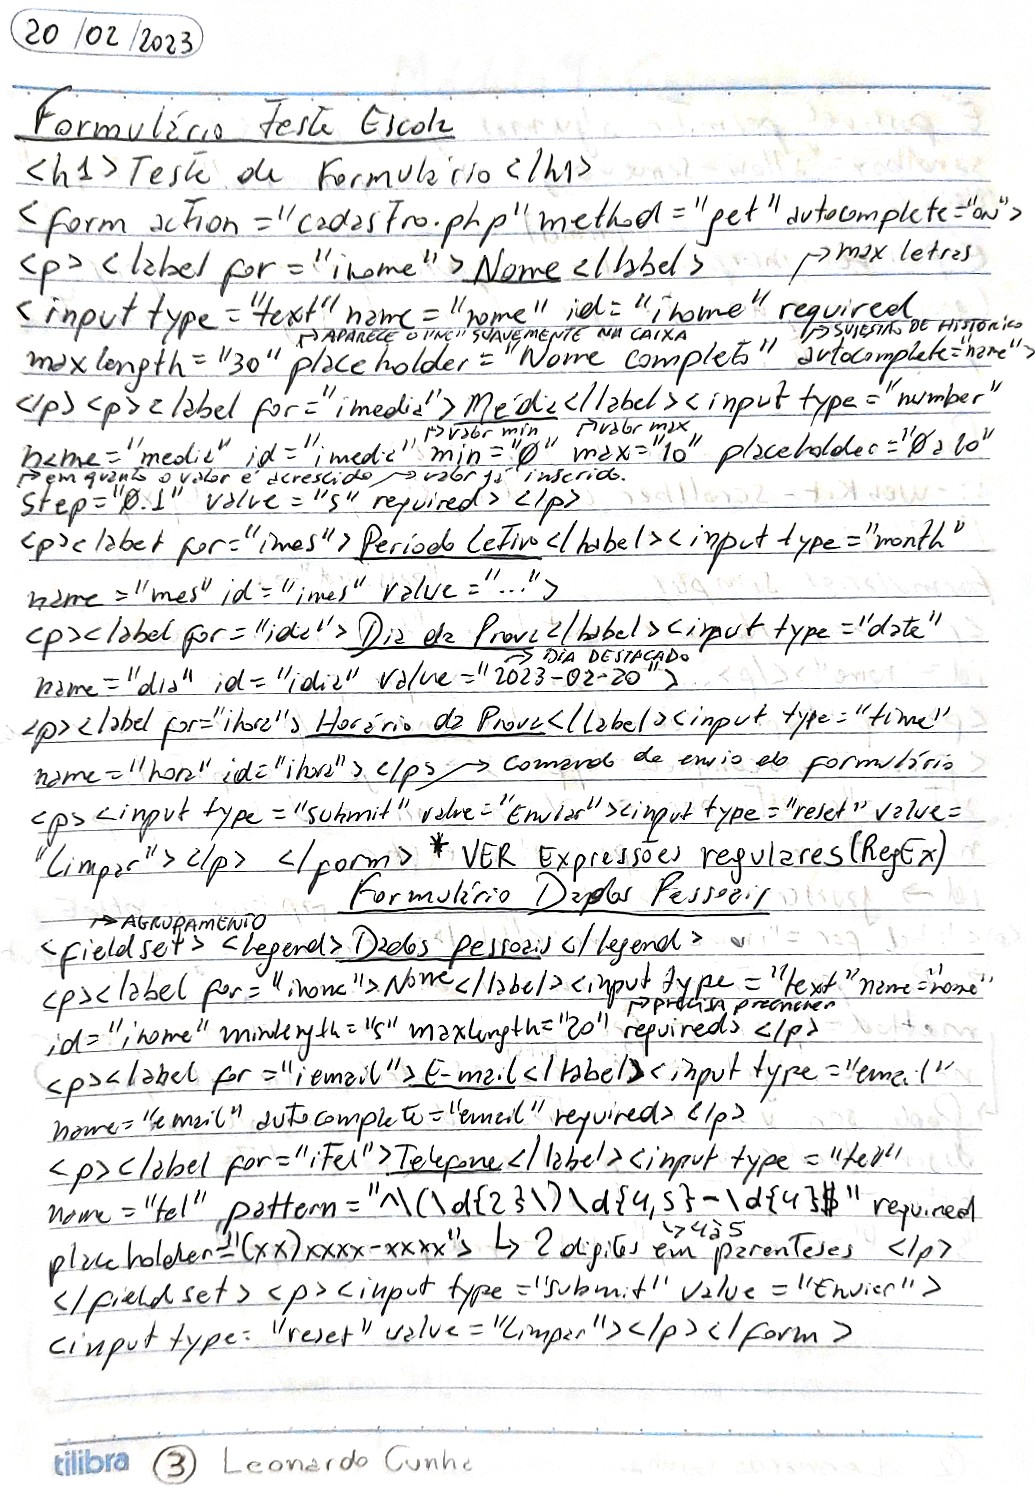 20/02/2023
Formulário Teste Escola
<h1>Teste de Formulário</h1>
<form action="cadastro.php" method="get" autocomplete="on">
<p><label for="inome">Nome</label> ↱max letras
<input type="text" name="nome" id="inome" required
↱APARECE O "NC" SUAVEMENTE NA CAIXA ↱SUJESTÃO DE HISTÓRICO
maxlength="30" placeholder="Nome completo" autocomplete="name">
</p><p><label for="imedia">Média</label><input type="number"
↱valor min ↱valor max
name="media" id="imedia" min="0" max="10" placeholder="0 a 10"
↱em quanto o valor é acrescido ↱valor já inserido.
step="0.1" value="5" required></p>
<p><label for="imes">Período Letivo</label><input type="month"
name="mes" id="imes" value="...">
<p><label for="idia">Dia da Prova</label><input type="date"
↱DIA DESTACADO
name="dia" id="idia" value="2023-02-20">
<p><label for="ihora">Horário da Prova</label><input type="time"
name="hora" id="ihora"></p> → comando de envio do formulário
<p><input type="submit" value="Enviar"><input type="reset" value=
"Limpar"></p> </form> * VER Expressões regulares (RegEx)
Formulário Dados Pessoais
↱AGRUPAMENTO
<fieldset> <legend>Dados pessoais</legend>
<p><label for="inome">Nome</label><input type="text" name="nome"
↱PRECISA PREENCHER
id="inome" minlength="5" maxlength="20" required></p>
<p><label for="iemail">E-mail</label><input type="email"
name="email" autocomplete="email" required></p>
<p><label for="iTel">Telefone</label><input type="tel"
name="tel", pattern="^\(\d{2}\)\d{4,5}-\d{4}$" required
↳4 à 5
placeholder="(xx)xxxx-xxxx"> ↳ 2 digitos em parenteses </p>
</fieldset> <p><input type="submit" value="Enviar">
<input type="reset" value="Limpar"></p></form>
tilibra 3 Leonardo Cunha